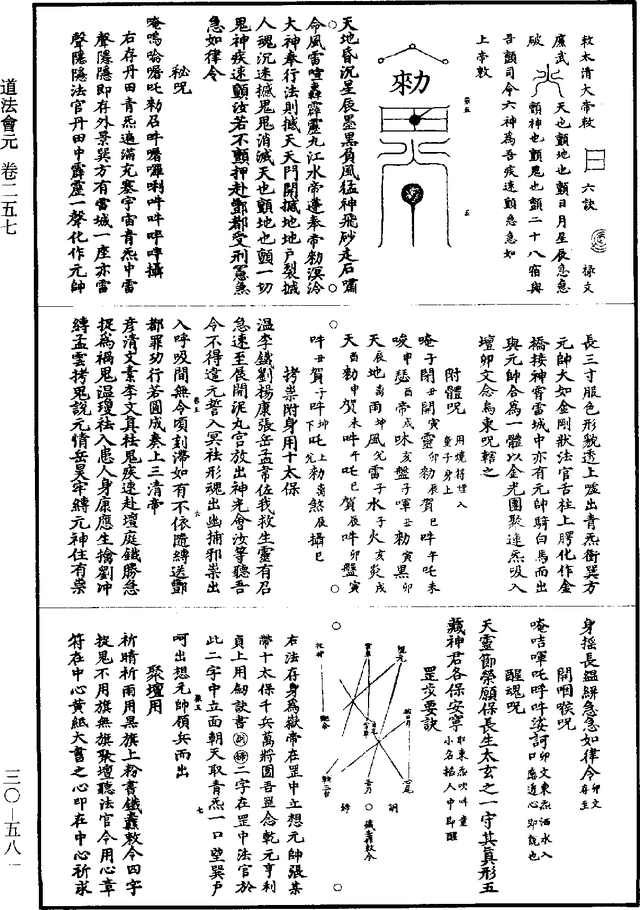 道法會元 卷二五七
三〇—五八一
敕太清大帝敕 六訣 梵文
廉武 天也顫地也顫日月星辰急急
破 顫神也顫鬼也顫二十八宿與
吾顫司令六神為吾疾速顫急急如
上帝敕
天地昏沉星辰墨黑負風猛神飛砂走石嘯
命風雷喧轟霹靂九江水帝蓬奉帝勑溟泠
大神奉行法則撼天天門開撼地地戶裂撼
人魂沉迷撼鬼鬼消滅天也顫地也顫一切
鬼神疾速顫汝若不顫押赴酆都受刑憲急
急如律令
秘呪
唵嗚哈囉吒勑召吽囉囉唎吽吽吽攝
右存丹田青炁遍滿充塞宇宙青炁中雷
聲隱隱即存外景巽方有雷城一座亦雷
聲隱隱法官丹田中霹靂一聲化作元帥
長三寸服色形貌透上噓出青炁衝巽方
元帥大如金剛狀法官舌柱上腭化作金
橋接神霄雷城中亦有元帥騎白馬而出
與元帥合為一體以金光團聚連炁吸入
壇卯文念烏東呪轄之
附體呪 用燒符噀入童子身上
唵子閉丑開寅靈卯勑辰賀巳吽午吒未
唆申瑟酉帝戌㕲亥盤子暉丑勑寅黑卯
天辰地毒雨坤風戈雷子水子火亥炎戌
天酉勑申賀未吽午吒巳賀辰吽卯盤寅
吽丑賀子吽坤吒上勑毒煞辰攝巳
拷祟附身用十太保
溫李鐵劉楊康張岳孟韋佐我救生靈有召
急速至辰開泥丸宮放出神光會汝等聽吾
令不得違元誓入冥社形魂出幽捕邪祟出
入呼吸間無令頃刻滯如有不依隨縛送酆
都罪功行若圓成奏上三清帝
彦清文素李文真祛鬼疾速赴壇庭鐵勝急
捉為禍鬼溫瓊祛入患人身康應生擒劉冲
縛孟雲拷鬼說元情岳昊牢縛元神住有祟
身搖長韞絣急急如律令
開咽喉呪
唵咭暉吒呼吽娑訶
醒魂呪
天靈節榮願保長生太玄之一守其真形五
藏神君各保安寧
罡步要訣
右法存身為嶽帝在罡中立想元帥張某
帶十太保千兵萬將圓吾罡念乾元亨利
貞上用劍訣書二字在罡中法官於
此二字中立面朝天取青炁一口望巽戶
呵出想元帥領兵而出
聚壇用
祈晴祈雨用黑旗上粉書鐵轟敕令四字
捉鬼不用旗無旗聚壇聽法官令用心章
符在中心黃紙大書之心即在中心祈求